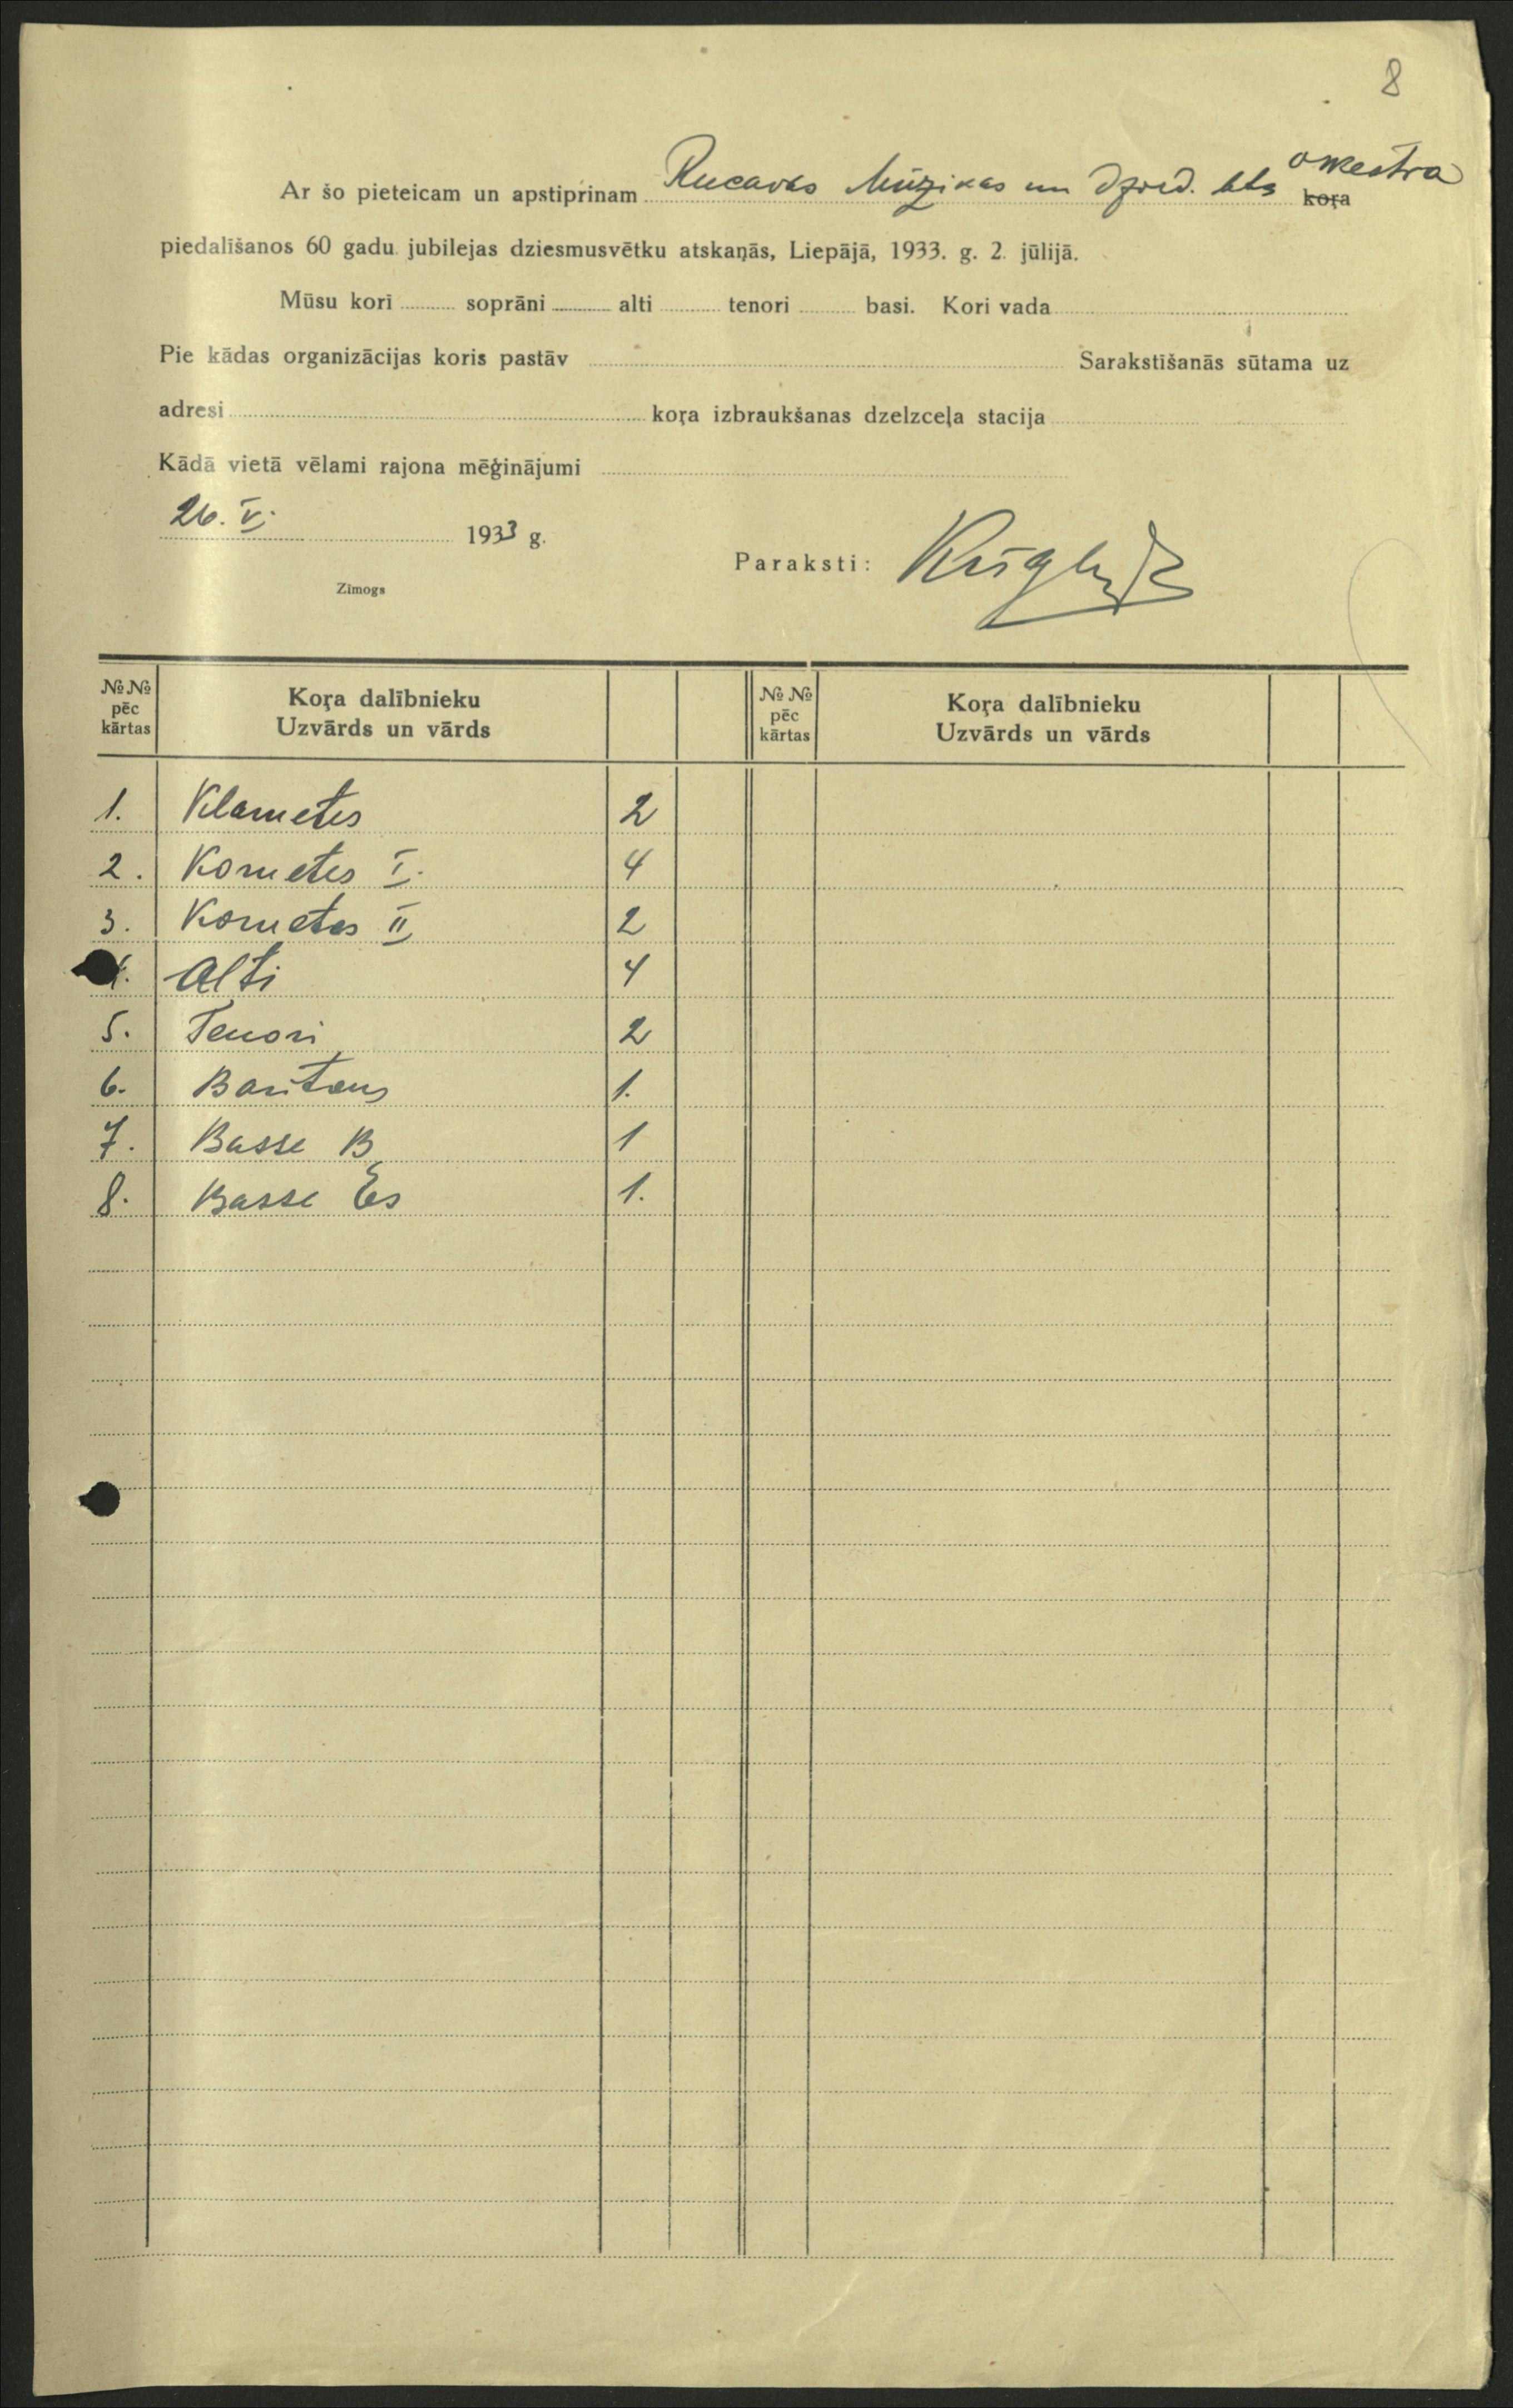 8
Ar šo pieteicam un apstiprinam Rucavas Mūzikas un Dzied. bts orkestra koŗa
piedalīšanos 60 gadu jubilejas dziesmusvētku atskaņās, Liepājā, 1933. g. 2. jūlijā.
Mūsu korī soprāni alti tenori basi. Kori vada
Pie kādas organizācijas koris pastāv Sarakstīšanās sūtama uz
adresi koŗa izbraukšanas dzelzceļa stacija
Kādā vietā vēlami rajona mēģinājumi
26. V. 1933 g.
Paraksti:
Zīmogs
№ № pēc kārtas Koŗa dalībnieku Uzvārds un vārds № № pēc kārtas Koŗa dalībnieku Uzvārds un vārds
1. Klarnetes 2
2. Kornetes I. 4
3. Kornetes II 2
4. Alti 4
5. Tenori 2
6. Baritons 1.
7. Basse B 1
8. Basse Es 1.